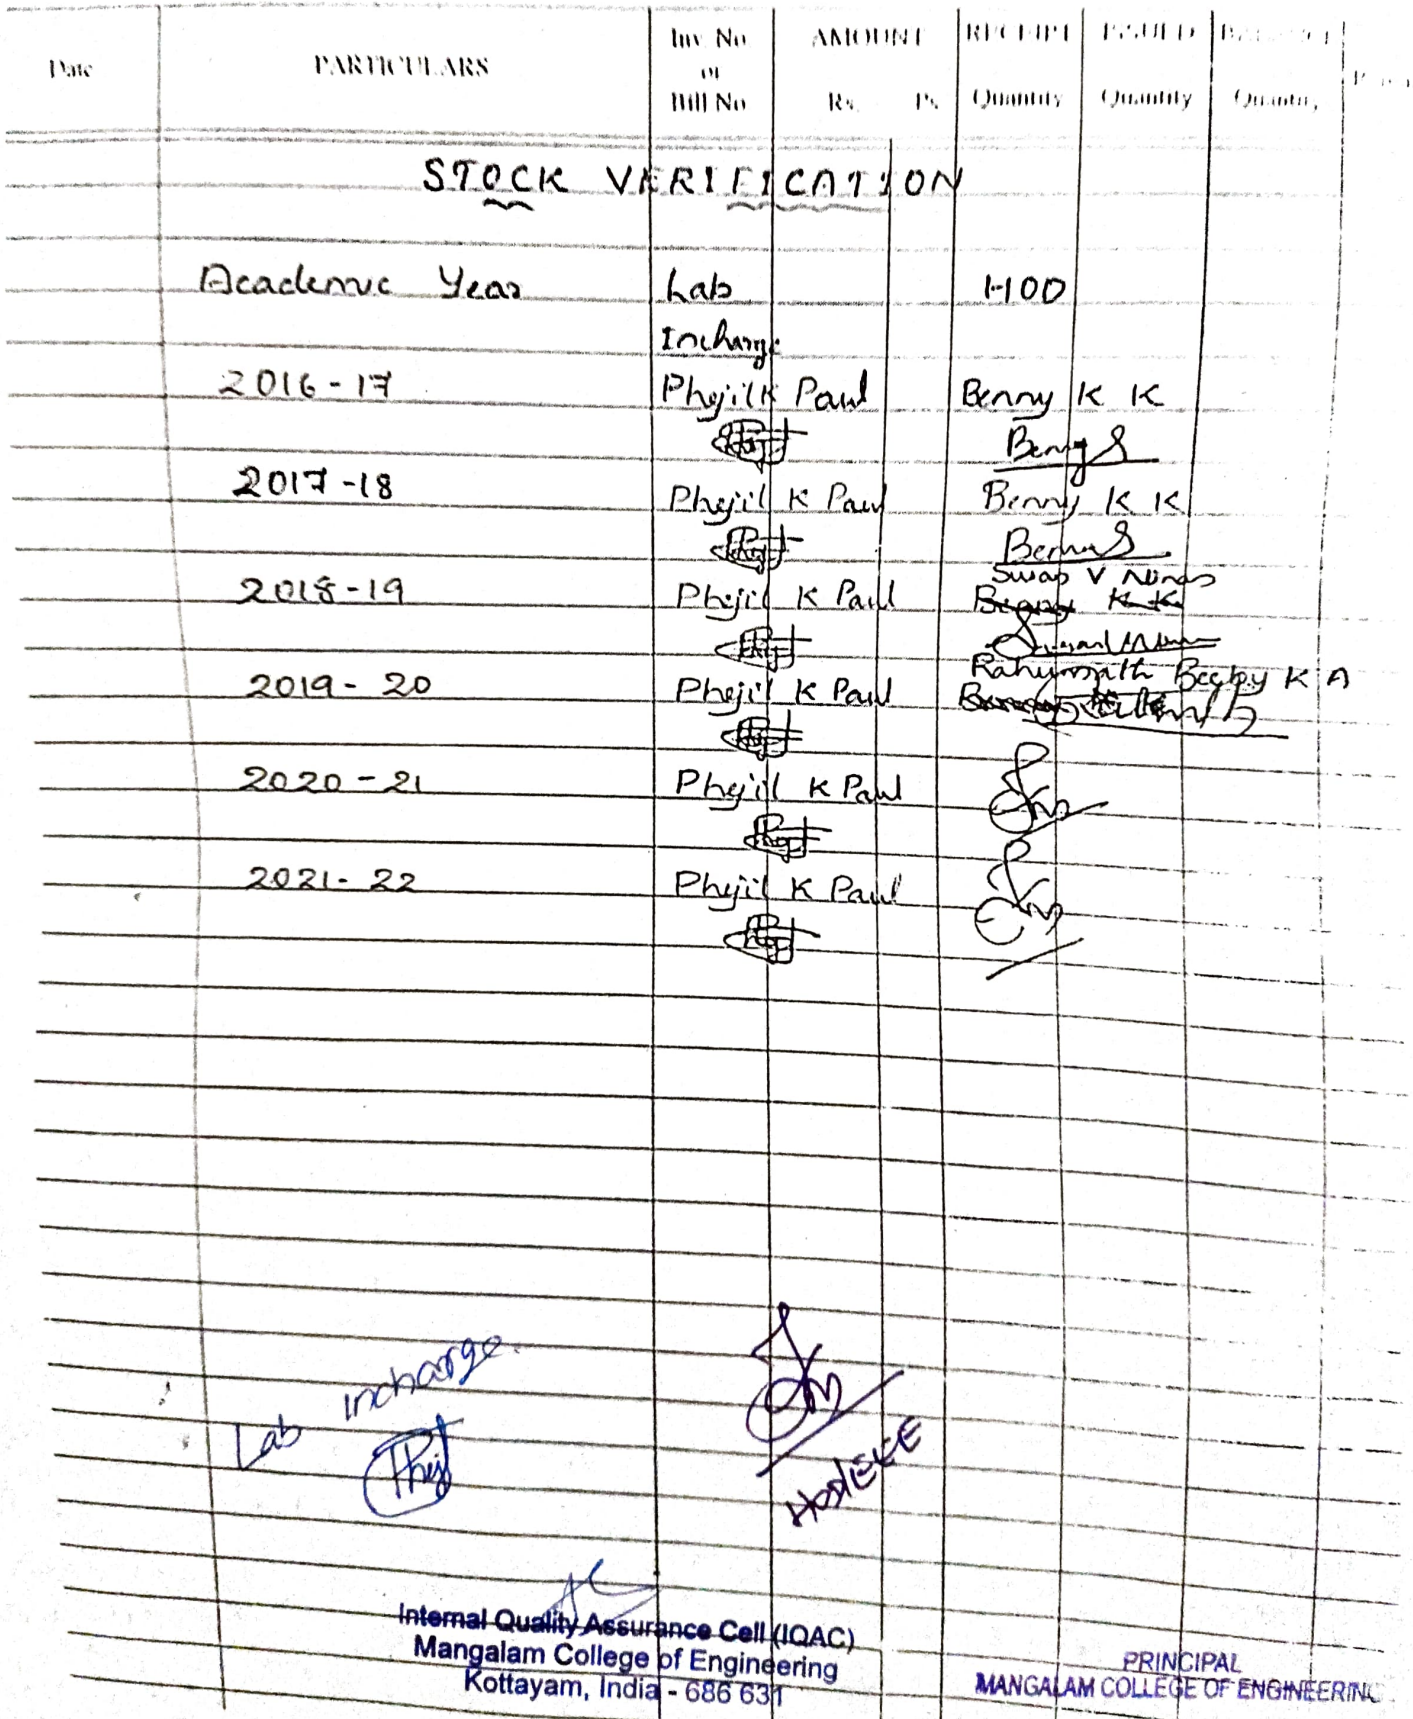 Date PARTICULARS Inv. No or Bill No AMOUNT Rs. Ps. RECEIPT Quantity ISSUED Quantity Quantity
STOCK VERIFICATION
Academic Year Lab Incharge HOD
2016-17 Phejil K Paul Benny K K
2017-18 Phejil K Paul Benny K K
Swap V
2018-19 Phejil K Paul Benny K K
K A
2019-20 Phejil K Paul
2020-21 Phejil K Paul
2021-22 Phejil K Paul
Lab Incharge.
HOD/EEE
Internal Quality Assurance Cell (IQAC)
Mangalam College of Engineering
Kottayam, India - 686 631
PRINCIPAL
MANGALAM COLLEGE OF ENGINEERING